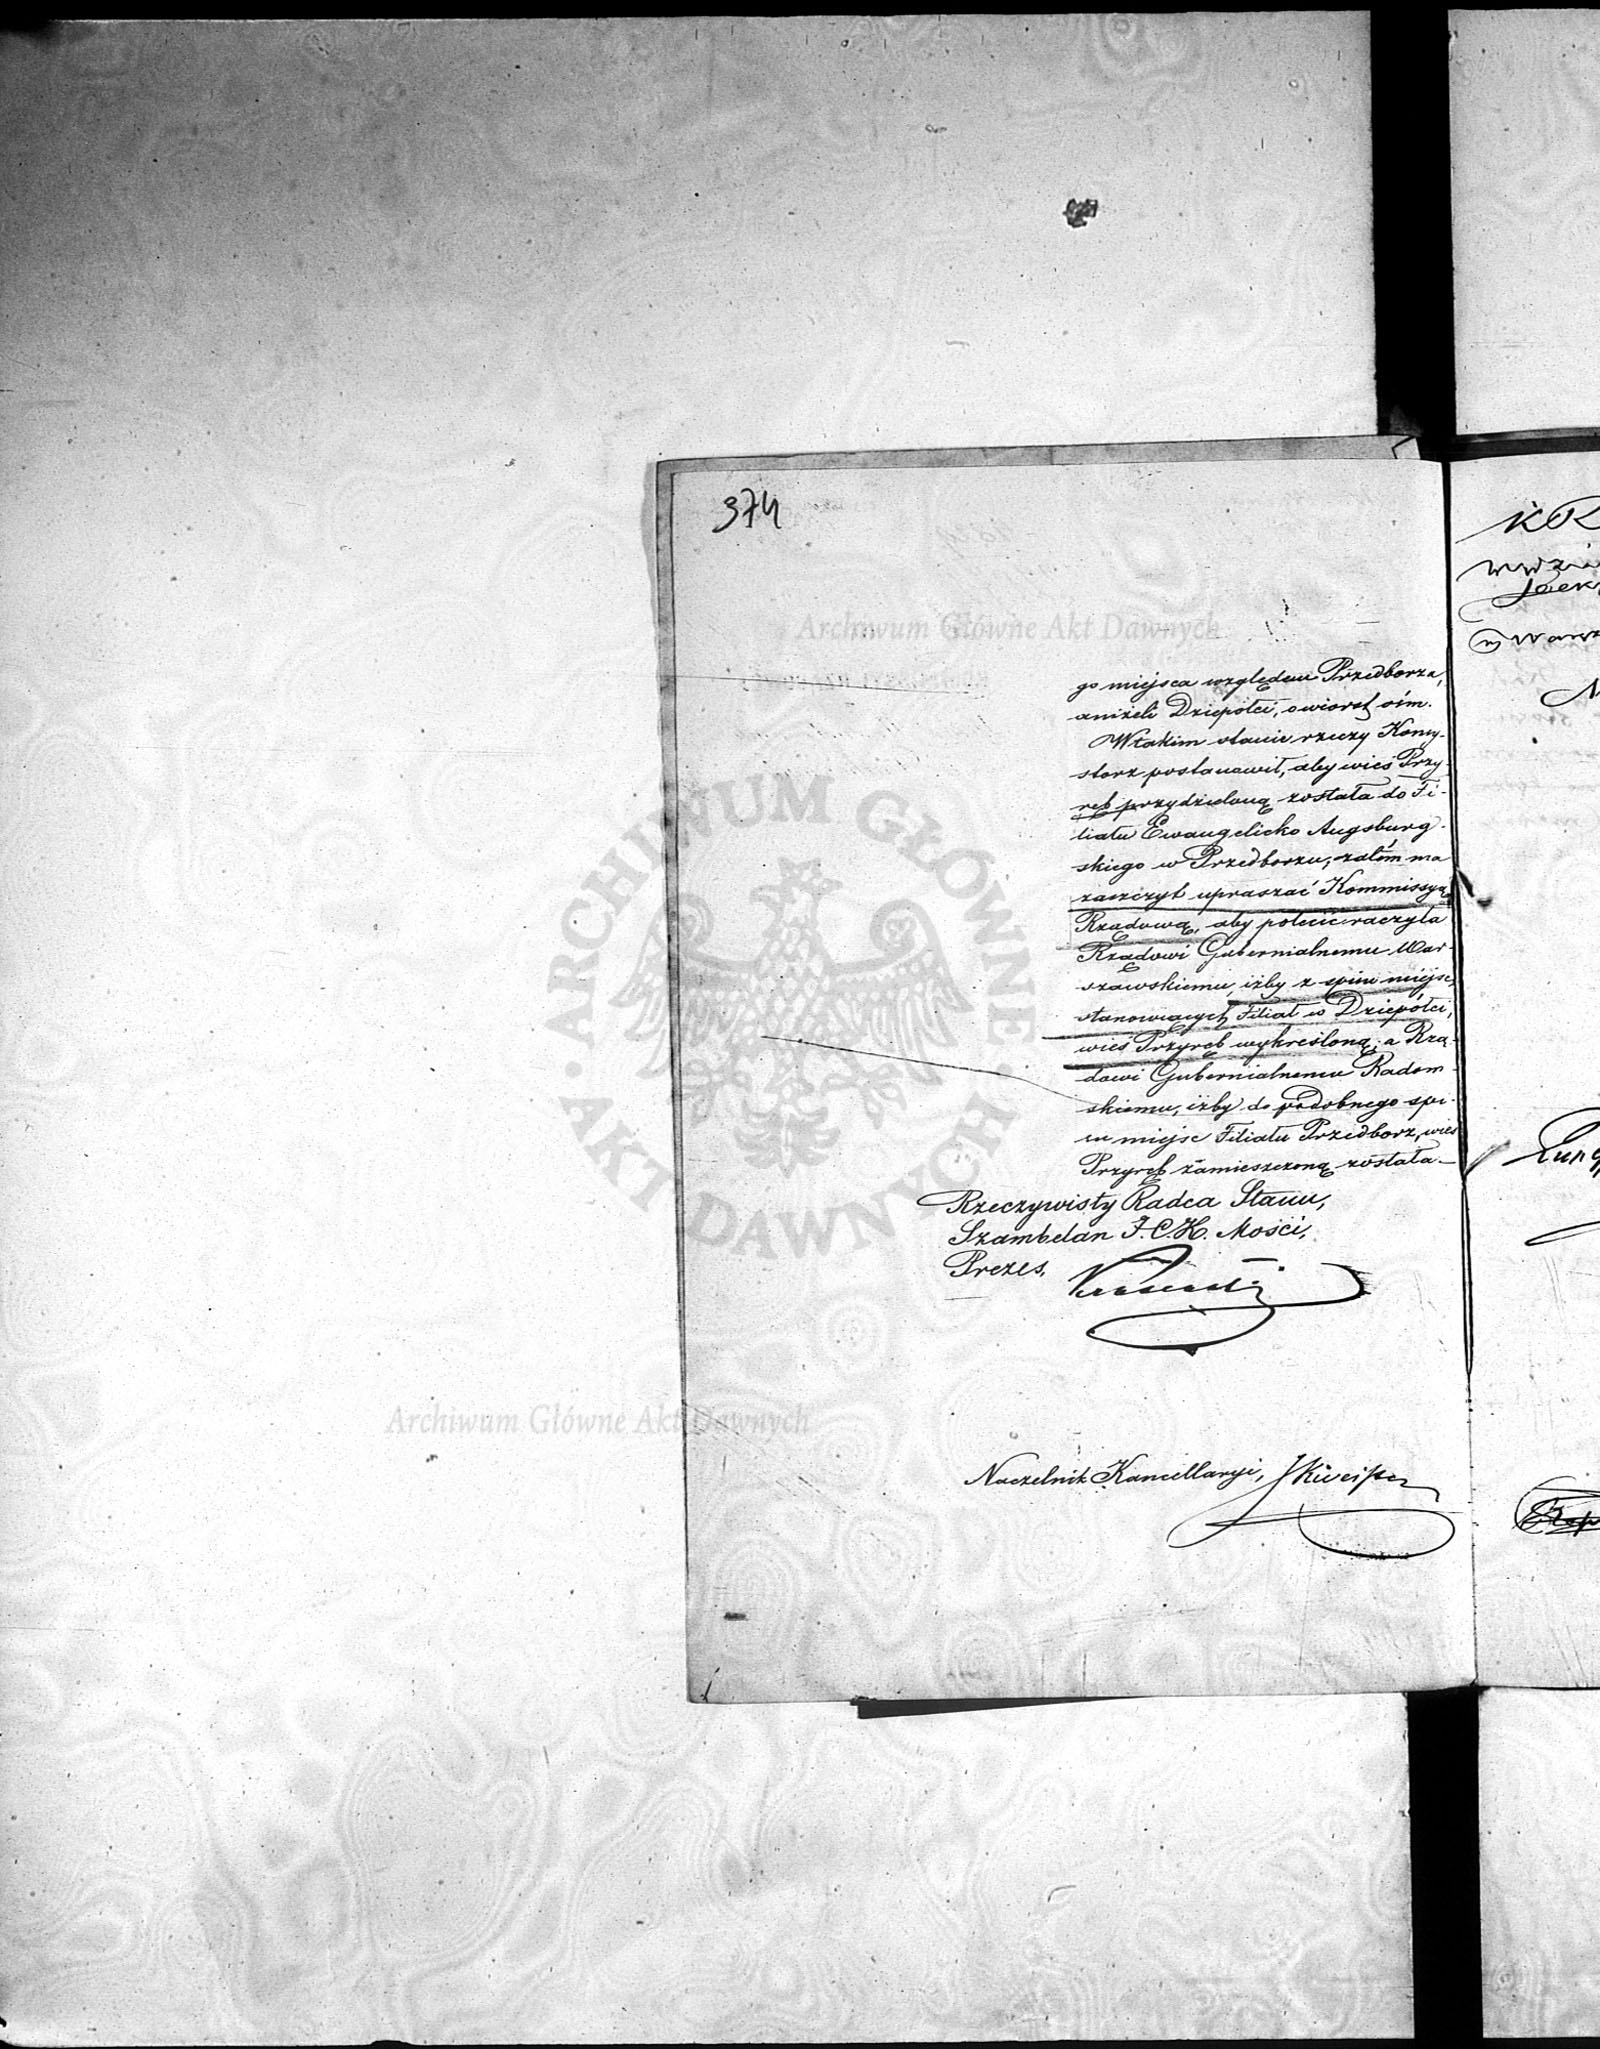 374
go miejsca względem Przedborza,
aniżeli Dziepółci, o wiorst ośm.
W takim stanie rzeczy Konsy-
storz postanowił, aby wieś Przy-
ręb przydzieloną została do Fi-
liału Ewangelicko Augsburg-
skiego w Przedborzu; zatém ma
zaszczyt upraszać Kommissyą
Rządową, aby polecić raczyła
Rządowi Gubernialnemu War-
szawskiemu, iżby z spisu miejsc,
stanowiących Filiał w Dziepółci,
wieś Przyręb wykreśloną; a Rzą-
dowi Gubernialnemu Radom-
skiemu, iżby do podobnego spi-
su miejsc Filiału Przedborz, wieś
Przyręb zamieszczoną została.—
Rzeczywisty Radca Stanu,
Szambelan J.C.K. Mości,
Prezes,
Naczelnik Kancellaryi,
Archiwum Główne Akt Dawnych
ARCHIWUM GŁÓWNE
· AKT DAWNYCH ·
Archiwum Główne Akt Dawnych